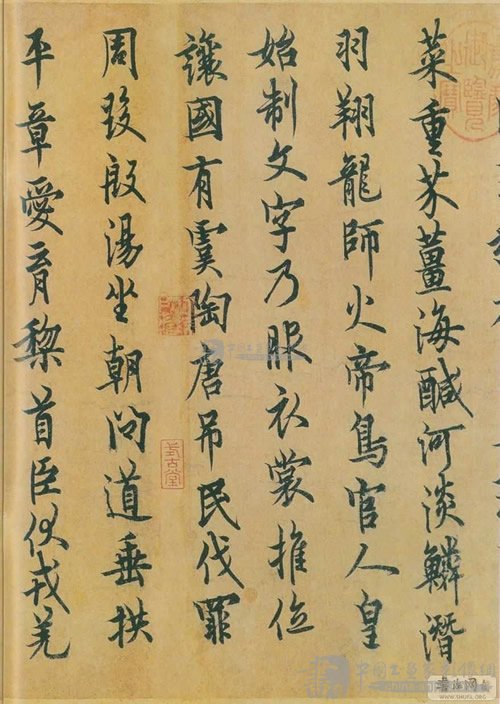 菜重芥薑海醎河淡鱗潛
羽翔龍師火帝鳥官人皇
始制文字乃服衣裳推位
讓國有虞陶唐吊民伐罪
周發殷湯坐朝問道垂拱
平章愛育黎首臣伏戎羌
式古堂
書法网
WWW.SHUFA.ORG